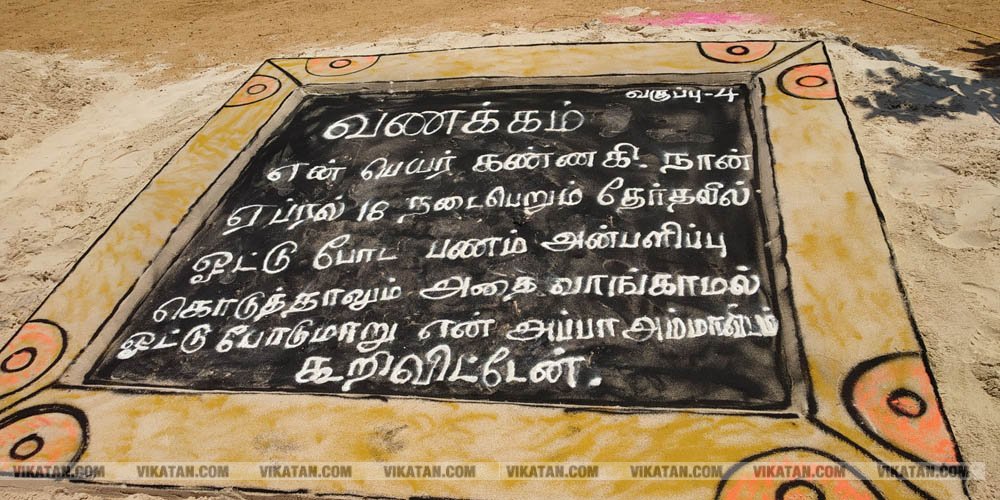 வகுப்பு-4
வணக்கம்
என் பெயர் கண்ணகி. நான்
ஏப்ரல் 18 நடைபெறும் தேர்தலில்
ஓட்டு போட பணம் அன்பளிப்பு
கொடுத்தாலும் அதை வாங்காமல்
ஓட்டு போடுமாறு என் அப்பா அம்மாவிடம்
கூறிவிட்டேன்.
VIKATAN.COM VIKATAN.COM VIKATAN.COM VIKATAN.COM VIKATAN.COM VIKATAN.COM VIKATAN.COM VIKATAN.COM